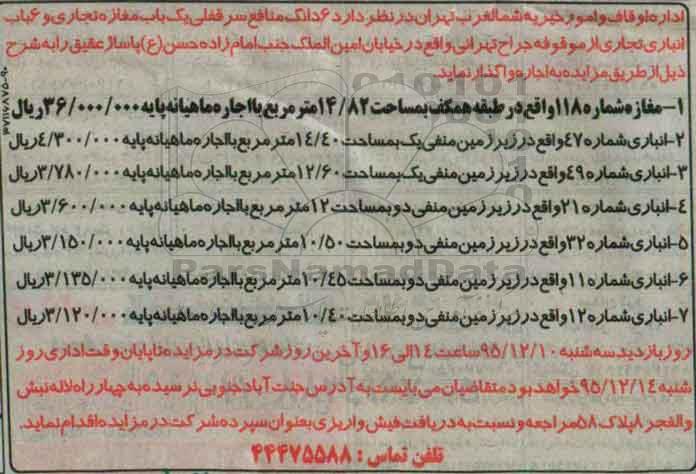 اداره اوقاف و امور خیریه شمالغرب تهران در نظر دارد ۶ دانگ منافع سرقفلی یک باب مغازه تجاری و ۶ باب
انباری تجاری از موقوفه جراح تهرانی واقع در خیابان امین الملک جنب امام زاده حسن (ع) پاساژ عقیق را به شرح
ذیل از طریق مزایده به اجاره واگذار نماید.
۱- مغازه شماره ۱۱۸ واقع در طبقه همکف بمساحت ۱۴/۸۲ متر مربع با اجاره ماهیانه پایه ۳۶/۰۰۰/۰۰۰ ریال
۲- انباری شماره ۴۷ واقع در زیرزمین منفی یک بمساحت ۱۴/۴۰ متر مربع با اجاره ماهیانه پایه ۴/۳۰۰/۰۰۰ ریال
۳- انباری شماره ۴۹ واقع در زیرزمین منفی یک بمساحت ۱۲/۶۰ متر مربع با اجاره ماهیانه پایه ۳/۷۸۰/۰۰۰ ریال
۴- انباری شماره ۲۱ واقع در زیرزمین منفی دو بمساحت ۱۲ متر مربع با اجاره ماهیانه پایه ۳/۶۰۰/۰۰۰ ریال
۵- انباری شماره ۳۲ واقع در زیرزمین منفی دو بمساحت ۱۰/۵۰ متر مربع با اجاره ماهیانه پایه ۳/۱۵۰/۰۰۰ ریال
ParsNamadData
۶- انباری شماره ۱۱ واقع در زیرزمین منفی دو بمساحت ۱۰/۴۵ متر مربع با اجاره ماهیانه پایه ۳/۱۳۵/۰۰۰ ریال
۷- انباری شماره ۱۲ واقع در زیرزمین منفی دو بمساحت ۱۰/۴۰ متر مربع با اجاره ماهیانه پایه ۳/۱۲۰/۰۰۰ ریال
روز بازدید سه شنبه ۹۵/۱۲/۱۰ ساعت ۱۴ الی ۱۶ و آخرین روز شرکت در مزایده تا پایان وقت اداری روز
شنبه ۹۵/۱۲/۱۴ خواهد بود متقاضیان می بایست به آدرس جنت آباد جنوبی نرسیده به چهار راه لاله نبش
والفجر ۸ پلاک ۵۸ مراجعه و نسبت به دریافت فیش واریزی بعنوان سپرده شرکت در مزایده اقدام نماید.
تلفن تماس : ۴۴۴۷۵۵۸۸